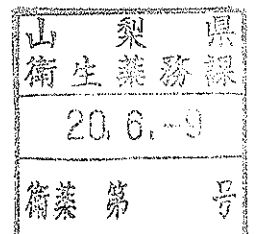 山梨県
衛生薬務課
20. 6. -9
衛薬 第 号